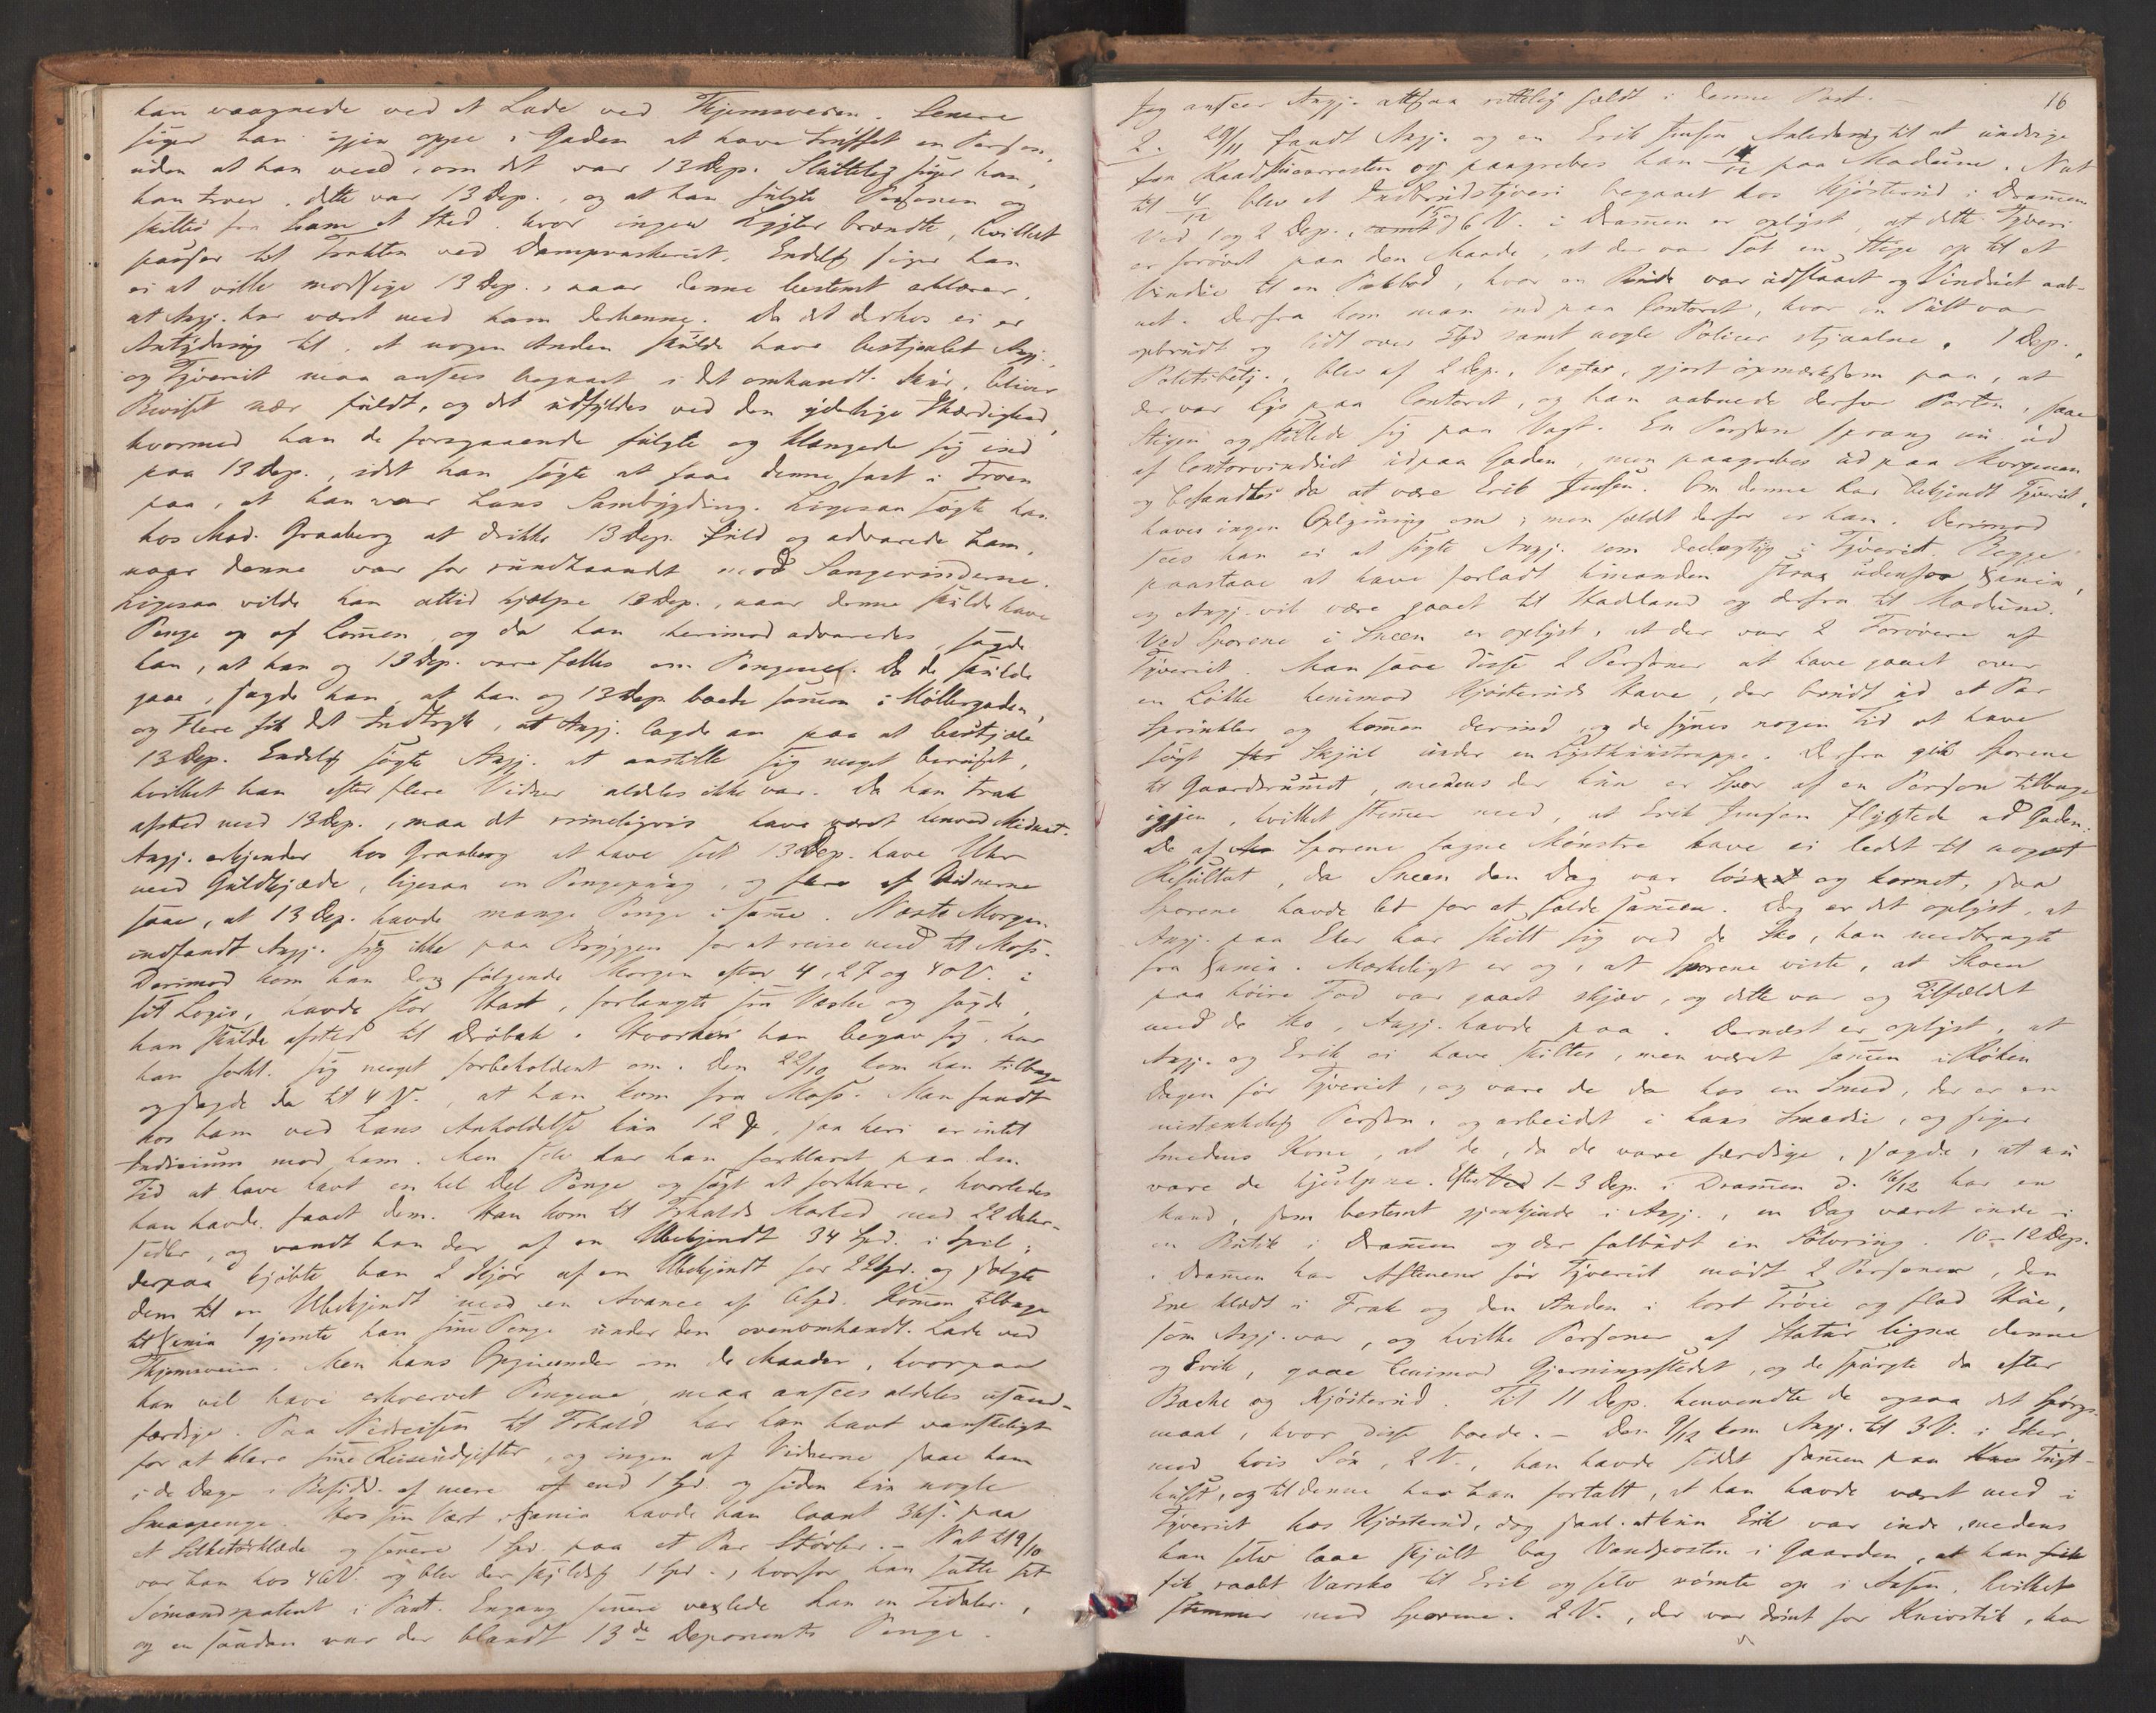 han vaagnede ved et Lade ved Thjemsveien. Senere
siger han igjen oppe i Gaden at have truffet en Person,
uden at han veed, om det var 13 Dep. Sluttelig siger han,
han troer, dette var 13 Dep., og at han fulgte Personen og
skiltes fra ham et Sted, hvor ingen Lygter brændte, hvilket
passer til Trakten ved Dampvaskeriet. Endelig siger han
ei at ville modsige 13 Dep., naar denne bestemt erklærer,
at Angj. har været med ham derhenne. Da det derhos ei er
Antydning til, at nogen Anden skulde have bestjaalet Angj.,
og Tyveriet maa ansees begaaet i det omhandl. Skur, bliver
Beviset nær fuldt, og det udfyldes ved den yderlige Ihærdighed,
hvormed han de foregaaende fulgte og klængede sig ind
paa 13 Dep., idet han søgte at faae denne fast i Troen
paa, at han var hans Sambygding. Ligesaa søgte han
hos Mad. Graaberg at drikke 13 Dep. fuld og advarede ham,
naar denne var for rundhaandet mod Sangerinderne.
Ligesaa vilde han altid hjælpe 13 Dep., naar denne skulde have
Penge op af Lommen, og da han herimod advaredes, sagde
han, at han og 13 Dep. vare fælles om Pengene. Da de skulde
gaae, sagde han, at han og 13 Dep. boede sammen i Møllergaden,
og Flere fik det Indtryk, at Angj. lagde an paa at bestjæle
13 Dep. Endelig søgte Angj. at anstille sig meget beruset,
hvilket han efter flere Vidner aldeles ikke var. Da han trak
afsted med 13 Dep., maa det rimeligvis have været henved Midnat.
Angj. erkjender hos Graaberg at have seet 13 Dep. have Uhr
med Guldkjæde, ligesaa en Pengepung, og flere af Vidnerne
saae, at 13 Dep. havde mange Penge i samme. Næste Morgen
indfandt Angj. sig ikke paa Bryggen for at reise med til Moss.
Derimod kom han den følgende Morgen efter 4, 27 og 40 V. i
sit Logis, havde stor Hast, forlangte sin Vadsæk og sagde,
han skulde afsted til Drøbak. Hvorhen han begav sig, har
han forkl. sig meget forbeholdent om. Den 22/10 kom han tilbage
og sagde da til 4 V., at han kom fra Moss. Man fandt
hos ham ved hans Anholdelse kun 12 ß, saa heri er intet
Indicium mod ham. Men selv har han forklaret paa den
Tid at have havt en hel Del Penge og søgt at forklare, hvorledes
han havde faaet dem. Han kom til Frhalds Marked med 22 Daler-
sedler, og vandt han der af en Ubekjendt 34 Spd. i Spil;
derpaa kjøbte han 2 Kjør af en Ubekjendt for 22 Spd. og solgte
dem til en Ubekjendt med en Avance af 6 Spd. Kommen tilbage
til Xania gjemte han sine Penge under den ovenomhandl. Lade ved
Thjemsveien. Men hans Opgivender om de Maader, hvorpaa
han vil have erhvervet Pengene, maa ansees aldeles usand-
færdige. Paa Nedreisen til Frhald har han havt vanskeligt
for at klare sine Reiseudgifter, og ingen af Vidnerne saae ham
i de Dage i Besidd. af mere end 1 Spd. og siden kun nogle
Smaapenge. Hos sin Vært i Xania havde han laant 36 ß. paa
et Silketørklæde og senere 1 Spd. paa et Par Støvler. – Nat til 9/10
var han hos 46 V. og blev der skyldig 1 Spd., hvorfor han satte sit
Sømandspatent i Pant. Engang senere vexlede han en Tidaler,
og en saadan var der blandt 13de Deponents Penge.
16
Jeg anseer Angj. altsaa rettelig fældt i denne Post. –
2. 29/11 fandt Angj. og en Erik Jensen Anledning til at undvige
fra Raadstuearresten og paagrebes han 14/12 paa Modum. Nat
til 4/12 blev et Indbrudstyveri begaaet hos Kjøsterud i Drammen
Ved 1 og 2 Dep., samt 15 og 6 V. i Drammen er oplyst, at dette Tyveri
er forøvet paa den Maade, at der var sat en Stige op til et
Vindue til en Pakbod, hvor en Rude var udslaaet og Vinduet aab-
net. Derfra kom man ind paa Contoret, hvor en Pult var
opbrudt og lidt over 5 Spd samt nogle Policer stjaalne. 1 Dep.,
Politibetj., blev af 2 Dep., Vægter, gjort opmærksom paa, at
der var Lys paa Contoret, og han aabnede derfor Porten, saae
Stigen og stillede sig paa Vagt. En Person sprang nu ud
af Contorvinduet udpaa Gaden, men paagrebes udpaa Morgenen
og befandtes da at være Erik Jensen. Om denne har bekjendt Tyveriet,
haves ingen Oplysning om; men fældt derfor er han. Derimod
sees han ei at sigte Angj. som deelagtig i Tyveriet. Begge
paastaae at have forladt hinanden strax udenfor Xania,
og Angj. vil være gaaet til Hadland og derfra til Modum.
Ved Sporene i Sneen er oplyst, at der var 2 Forøvere af
Tyveriet. Man saae disse 2 Personer at have gaaet over
en Løkke henimod Kjøsteruds Have, der brudt ud et Par
Sprinkler og kommen derind, og de synes nogen Tid at have
søgt Skjul under en Lysthuustrappe. Derfra gik Sporene
til Gaardsrummet, medens der kun er Spor af en Person tilbage
igjen, hvilket stemmer med, at Erik Jensen flygtede ad Gaden.
De af Sporene tagne Mønstre have ei ledet til noget
Resultat, da Sneen den Dag var løs og kornet, saa
Sporene havde let for at falde sammen. Dog er det oplyst, at
Angj. paa Eker har skilt sig ved de Sko, han medbragte
fra Xania. Mærkeligt er og, at Sporene viste, at Skoen
paa høire Fod var gaaet skjæv, og dette var og Tilfældet
med de Sko, Angj. havde paa. Dernæst er oplyst, at
Angj. og Erik ei have skiltes, men været sammen i Røken
Dagen før Tyveriet, og vare de da hos en Smed, der er en
mistænkelig Person, og arbeidet i hans Smedie, og siger
Smedens Kone, at de, da de vare færdige, sagde, at nu
vare de hjulpne. Efter 1–3 Dep. i Drammen d. 16/12 har en
Mand, som bestemt gjenkjende i Angj., en Dag været inde i
en Butik i Drammen og der falbudt en Sølvring. 10–12 Dep.
i Drammen har Aftenen før Tyveriet mødt 2 Personer, den
Ene klædt i Frak og den Anden i kort Trøie og flad Hue,
som Angj. var, og hvilke Personer af Statur ligne denne
og Erik, gaae henimod Gjerningsstedet, og de spurgte da efter
Bache og Kjøsterud. Til 11 Dep. henvendte de ogsaa det Spørgs-
maal, hvor disse boede. – Den 9/12 kom Angj. til 3 V. i Eker,
med hvis Søn, 2 V., han havde siddet sammen paa Tugt-
huset, og til denne har han fortalt, at han havde været med i
Tyveriet hos Kjøsterud, dog saal. at kun Erik var inde, medens
han selv laae skjult bag Vandposten i Gaarden, at han
fik raabt Varsko til Erik og selv rømte op i Aasen, hvilket
stemmer med Sporene. 2 V., der var dømt for Knivstik, har